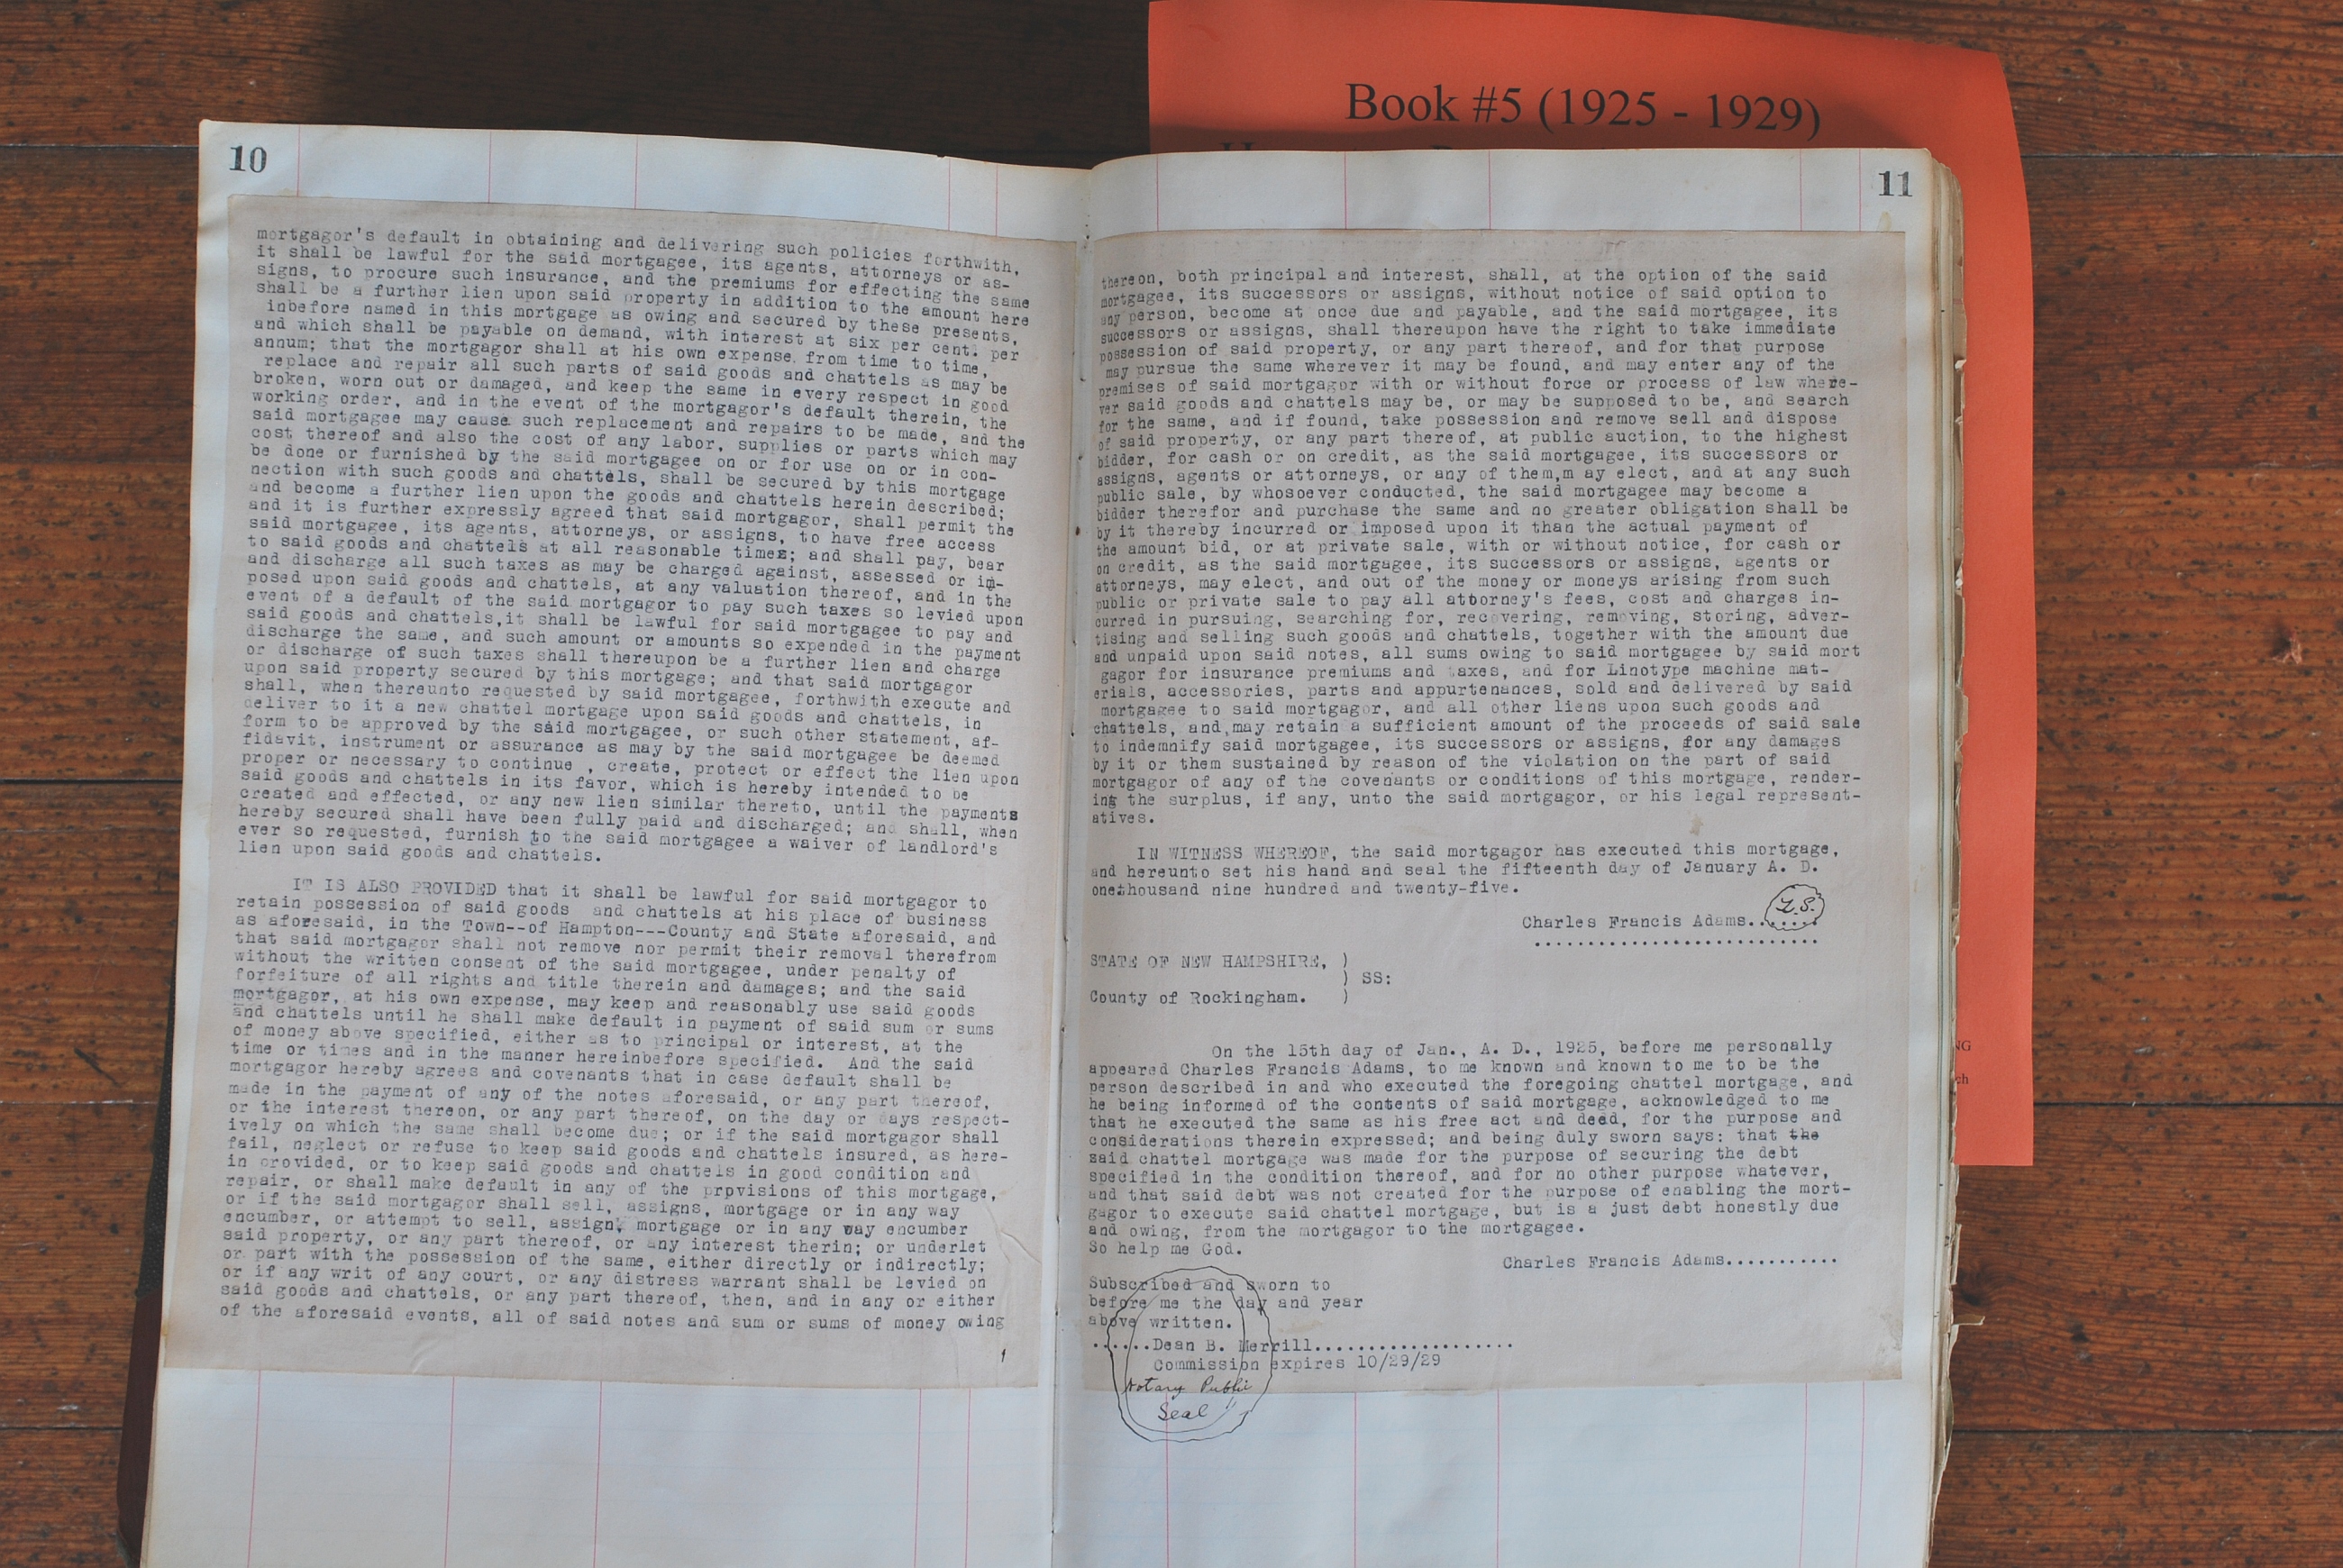 Book #5 (1925 - 1929)
10
mortgagor's default in obtaining and delivering such policies forthwith,
it shall be lawful for the said mortgagee, its agents, attorneys or as-
signs, to procure such insurance, and the premiums for effecting the same
shall be a further lien upon said property in addition to the amount here
inbefore named in this mortgage as owing and secured by these presents,
and which shall be payable on demand, with interest at six per cent. per
annum; that the mortgagor shall at his own expense from time to time,
replace and repair all such parts of said goods and chattels as may be
broken, worn out or damaged, and keep the same in every respect in good
working order, and in the event of the mortgagor's default therein, the
said mortgagee may cause such replacement and repairs to be made, and the
cost thereof and also the cost of any labor, supplies or parts which may
be done or furnished by the said mortgagee on or for use on or in con-
nection with such goods and chattels, shall be secured by this mortgage
and become a further lien upon the goods and chattels herein described;
and it is further expressly agreed that said mortgagor, shall permit the
said mortgagee, its agents, attorneys, or assigns, to have free access
to said goods and chattels at all reasonable times; and shall pay, bear
and discharge all such taxes as may be charged against, assessed or im-
posed upon said goods and chattels, at any valuation thereof, and in the
event of a default of the said mortgagor to pay such taxes so levied upon
said goods and chattels,it shall be lawful for said mortgagee to pay and
discharge the same, and such amount or amounts so expended in the payment
or discharge of such taxes shall thereupon be a further lien and charge
upon said property secured by this mortgage; and that said mortgagor
shall, when thereunto requested by said mortgagee, forthwith execute and
deliver to it a new chattel mortgage upon said goods and chattels, in
form to be approved by the said mortgagee, or such other statement, af-
fidavit, instrument or assurance as may by the said mortgagee be deemed
proper or necessary to continue , create, protect or effect the lien upon
said goods and chattels in its favor, which is hereby intended to be
created and effected, or any new lien similar thereto, until the payments
hereby secured shall have been fully paid and discharged; and shall, when
ever so requested, furnish to the said mortgagee a waiver of landlord's
lien upon said goods and chattels.
IT IS ALSO PROVIDED that it shall be lawful for said mortgagor to
retain possession of said goods and chattels at his place of business
as aforesaid, in the Town--of Hampton---County and State aforesaid, and
that said mortgagor shall not remove nor permit their removal therefrom
without the written consent of the said mortgagee, under penalty of
forfeiture of all rights and title therein and damages; and the said
mortgagor, at his own expense, may keep and reasonably use said goods
and chattels until he shall make default in payment of said sum or sums
of money above specified, either as to principal or interest, at the
time or times and in the manner hereinbefore specified. And the said
mortgagor hereby agrees and covenants that in case default shall be
made in the payment of any of the notes aforesaid, or any part thereof,
or the interest thereon, or any part thereof, on the day or days respect-
ively on which the same shall become due; or if the said mortgagor shall
fail, neglect or refuse to keep said goods and chattels insured, as here-
in provided, or to keep said goods and chattels in good condition and
repair, or shall make default in any of the prpvisions of this mortgage,
or if the said mortgagor shall sell, assigns, mortgage or in any way
encumber, or attempt to sell, assign, mortgage or in any way encumber
said property, or any part thereof, or any interest therin; or underlet
or part with the possession of the same, either directly or indirectly;
or if any writ of any court, or any distress warrant shall be levied on
said goods and chattels, or any part thereof, then, and in any or either
of the aforesaid events, all of said notes and sum or sums of money owing
11
thereon, both principal and interest, shall, at the option of the said
mortgagee, its successors or assigns, without notice of said option to
any person, become at once due and payable, and the said mortgagee, its
successors or assigns, shall thereupon have the right to take immediate
possession of said property, or any part thereof, and for that purpose
may pursue the same wherever it may be found, and may enter any of the
premises of said mortgagor with or without force or process of law where-
ver said goods and chattels may be, or may be supposed to be, and search
for the same, and if found, take possession and remove sell and dispose
of said property, or any part thereof, at public auction, to the highest
bidder, for cash or on credit, as the said mortgagee, its successors or
assigns, agents or attorneys, or any of them,m ay elect, and at any such
public sale, by whosoever conducted, the said mortgagee may become a
bidder therefor and purchase the same and no greater obligation shall be
by it thereby incurred or imposed upon it than the actual payment of
the amount bid, or at private sale, with or without notice, for cash or
on credit, as the said mortgagee, its successors or assigns, agents or
attorneys, may elect, and out of the money or moneys arising from such
public or private sale to pay all attorney's fees, cost and charges in-
curred in pursuing, searching for, recovering, removing, storing, adver-
tising and selling such goods and chattels, together with the amount due
and unpaid upon said notes, all sums owing to said mortgagee by said mort
gagor for insurance premiums and taxes, and for Linotype machine mat-
erials, accessories, parts and appurtenances, sold and delivered by said
mortgagee to said mortgagor, and all other liens upon such goods and
chattels, and,may retain a sufficient amount of the proceeds of said sale
to indemnify said mortgagee, its successors or assigns, for any damages
by it or them sustained by reason of the violation on the part of said
mortgagor of any of the covenants or conditions of this mortgage, render-
ing the surplus, if any, unto the said mortgagor, or his legal represent-
atives.
IN WITNESS WHEREOF, the said mortgagor has executed this mortgage,
and hereunto set his hand and seal the fifteenth day of January A. D.
onethousand nine hundred and twenty-five.
L.S.
Charles Francis Adams........
............................
STATE OF NEW HAMPSHIRE, )
) SS:
County of Rockingham. )
On the 15th day of Jan., A. D., 1925, before me personally
appeared Charles Francis Adams, to me known and known to me to be the
person described in and who executed the foregoing chattel mortgage, and
he being informed of the contents of said mortgage, acknowledged to me
that he executed the same as his free act and deed, for the purpose and
considerations therein expressed; and being duly sworn says: that the
said chattel mortgage was made for the purpose of securing the debt
specified in the condition thereof, and for no other purpose whatever,
and that said debt was not created for the purpose of enabling the mort-
gagor to execute said chattel mortgage, but is a just debt honestly due
and owing, from the mortgagor to the mortgagee.
So help me God.
Charles Francis Adams...........
Subscribed and sworn to
before me the day and year
above written.
......Dean B. Merrill...................
Commission expires 10/29/29
Notary Public
Seal